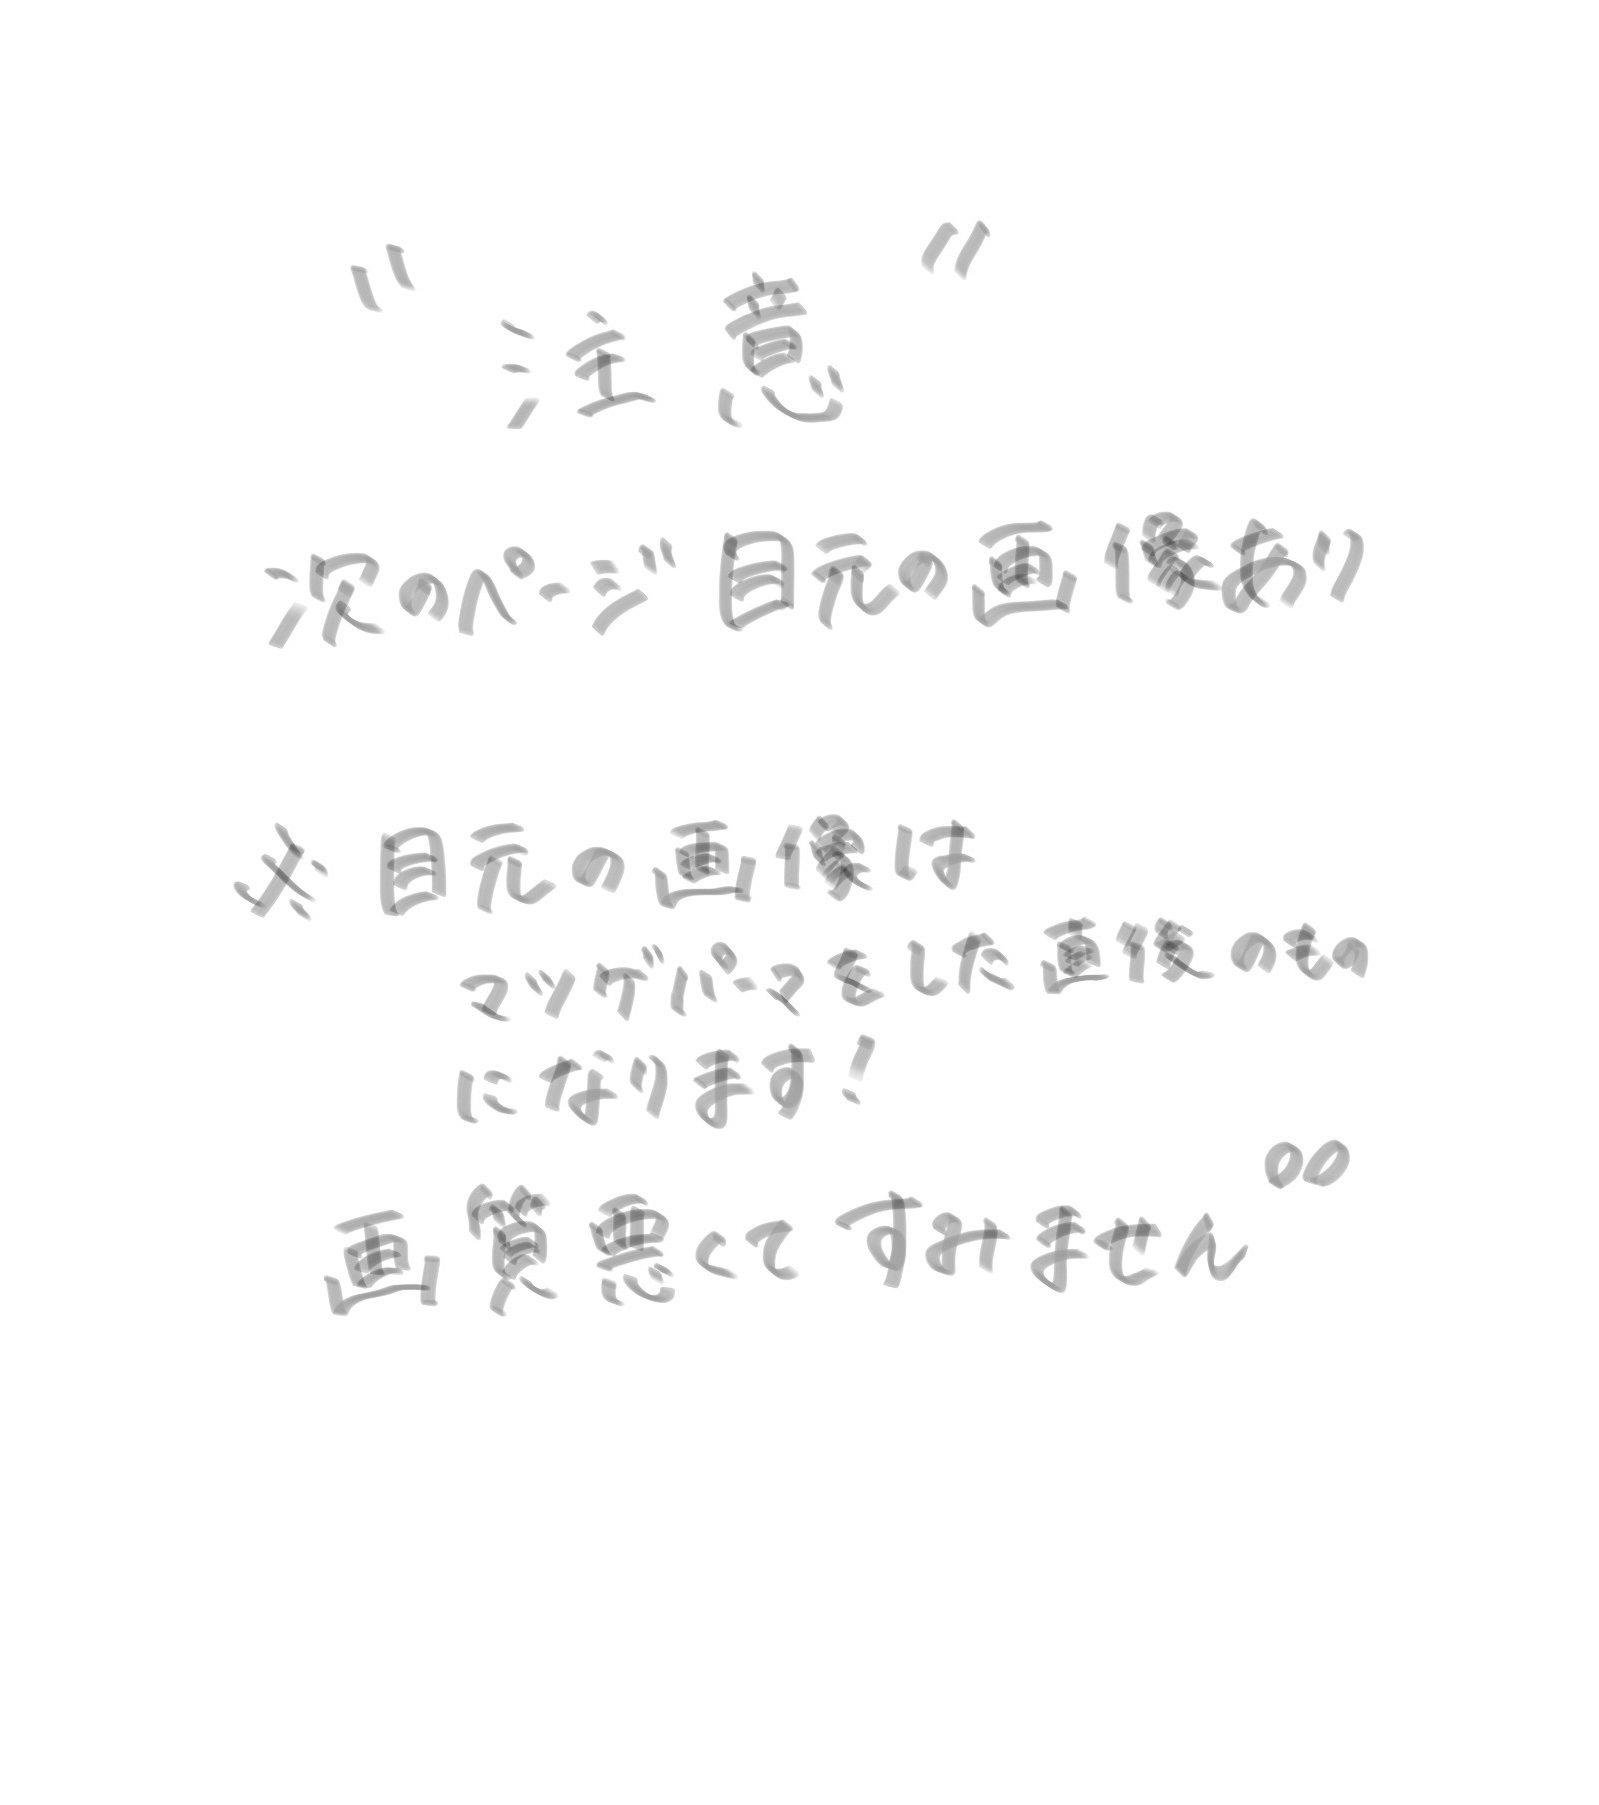 "注意"
次のページ目元の画像あり
※目元の画像は
マツゲパーマをした直後のもの
になります!
画質悪くてすみません。。